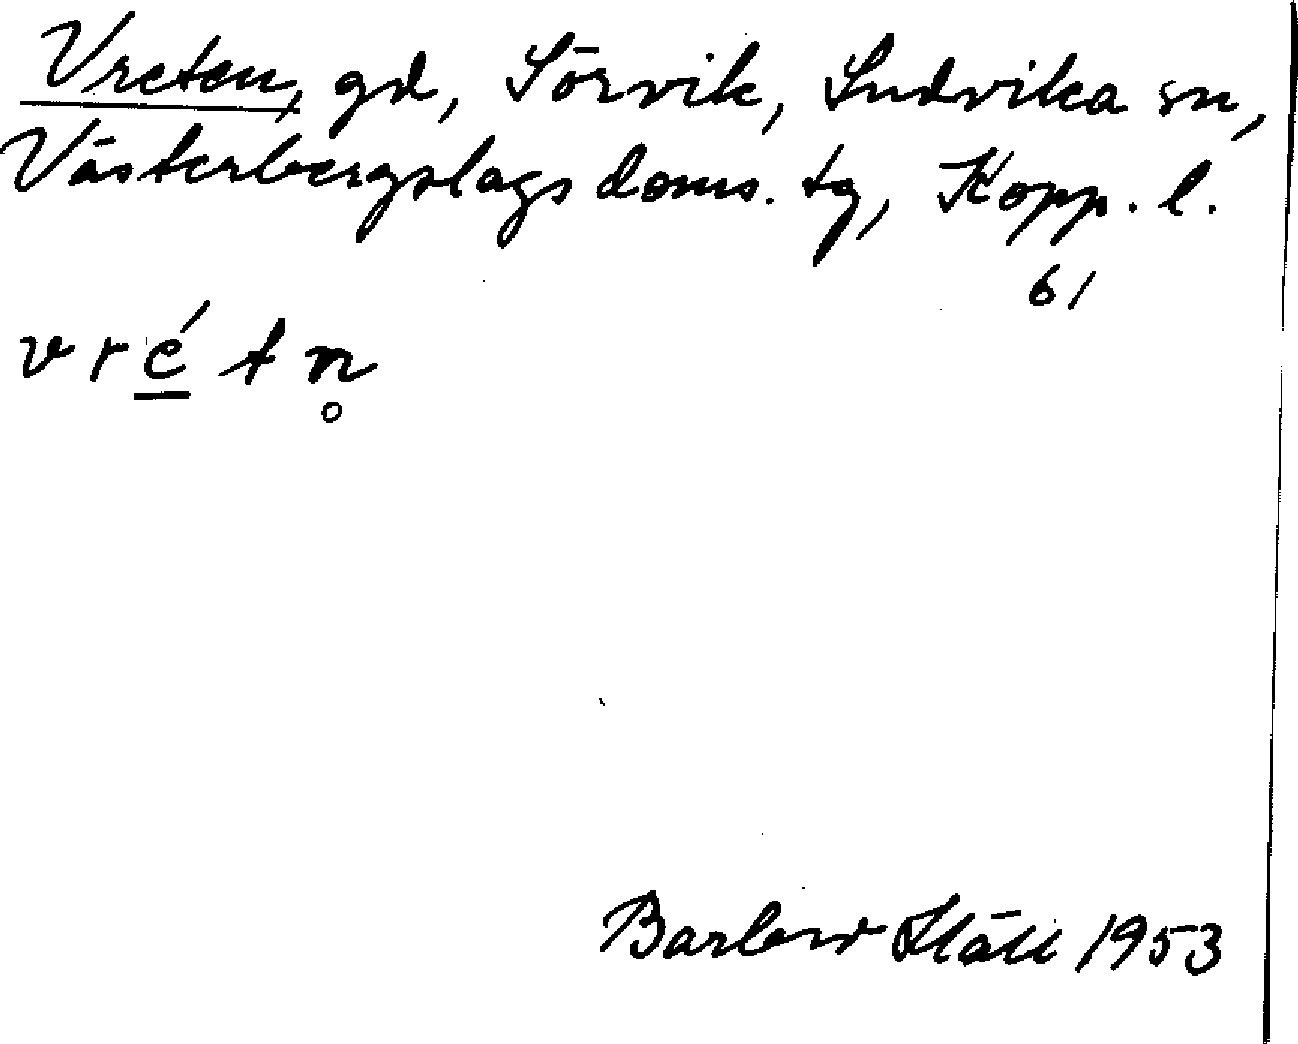 Vreten, gd, Sörvik, Ludvika sn,
Västerbergslags doms. tg, Kopp. l.
61
v r é t n̥
1953